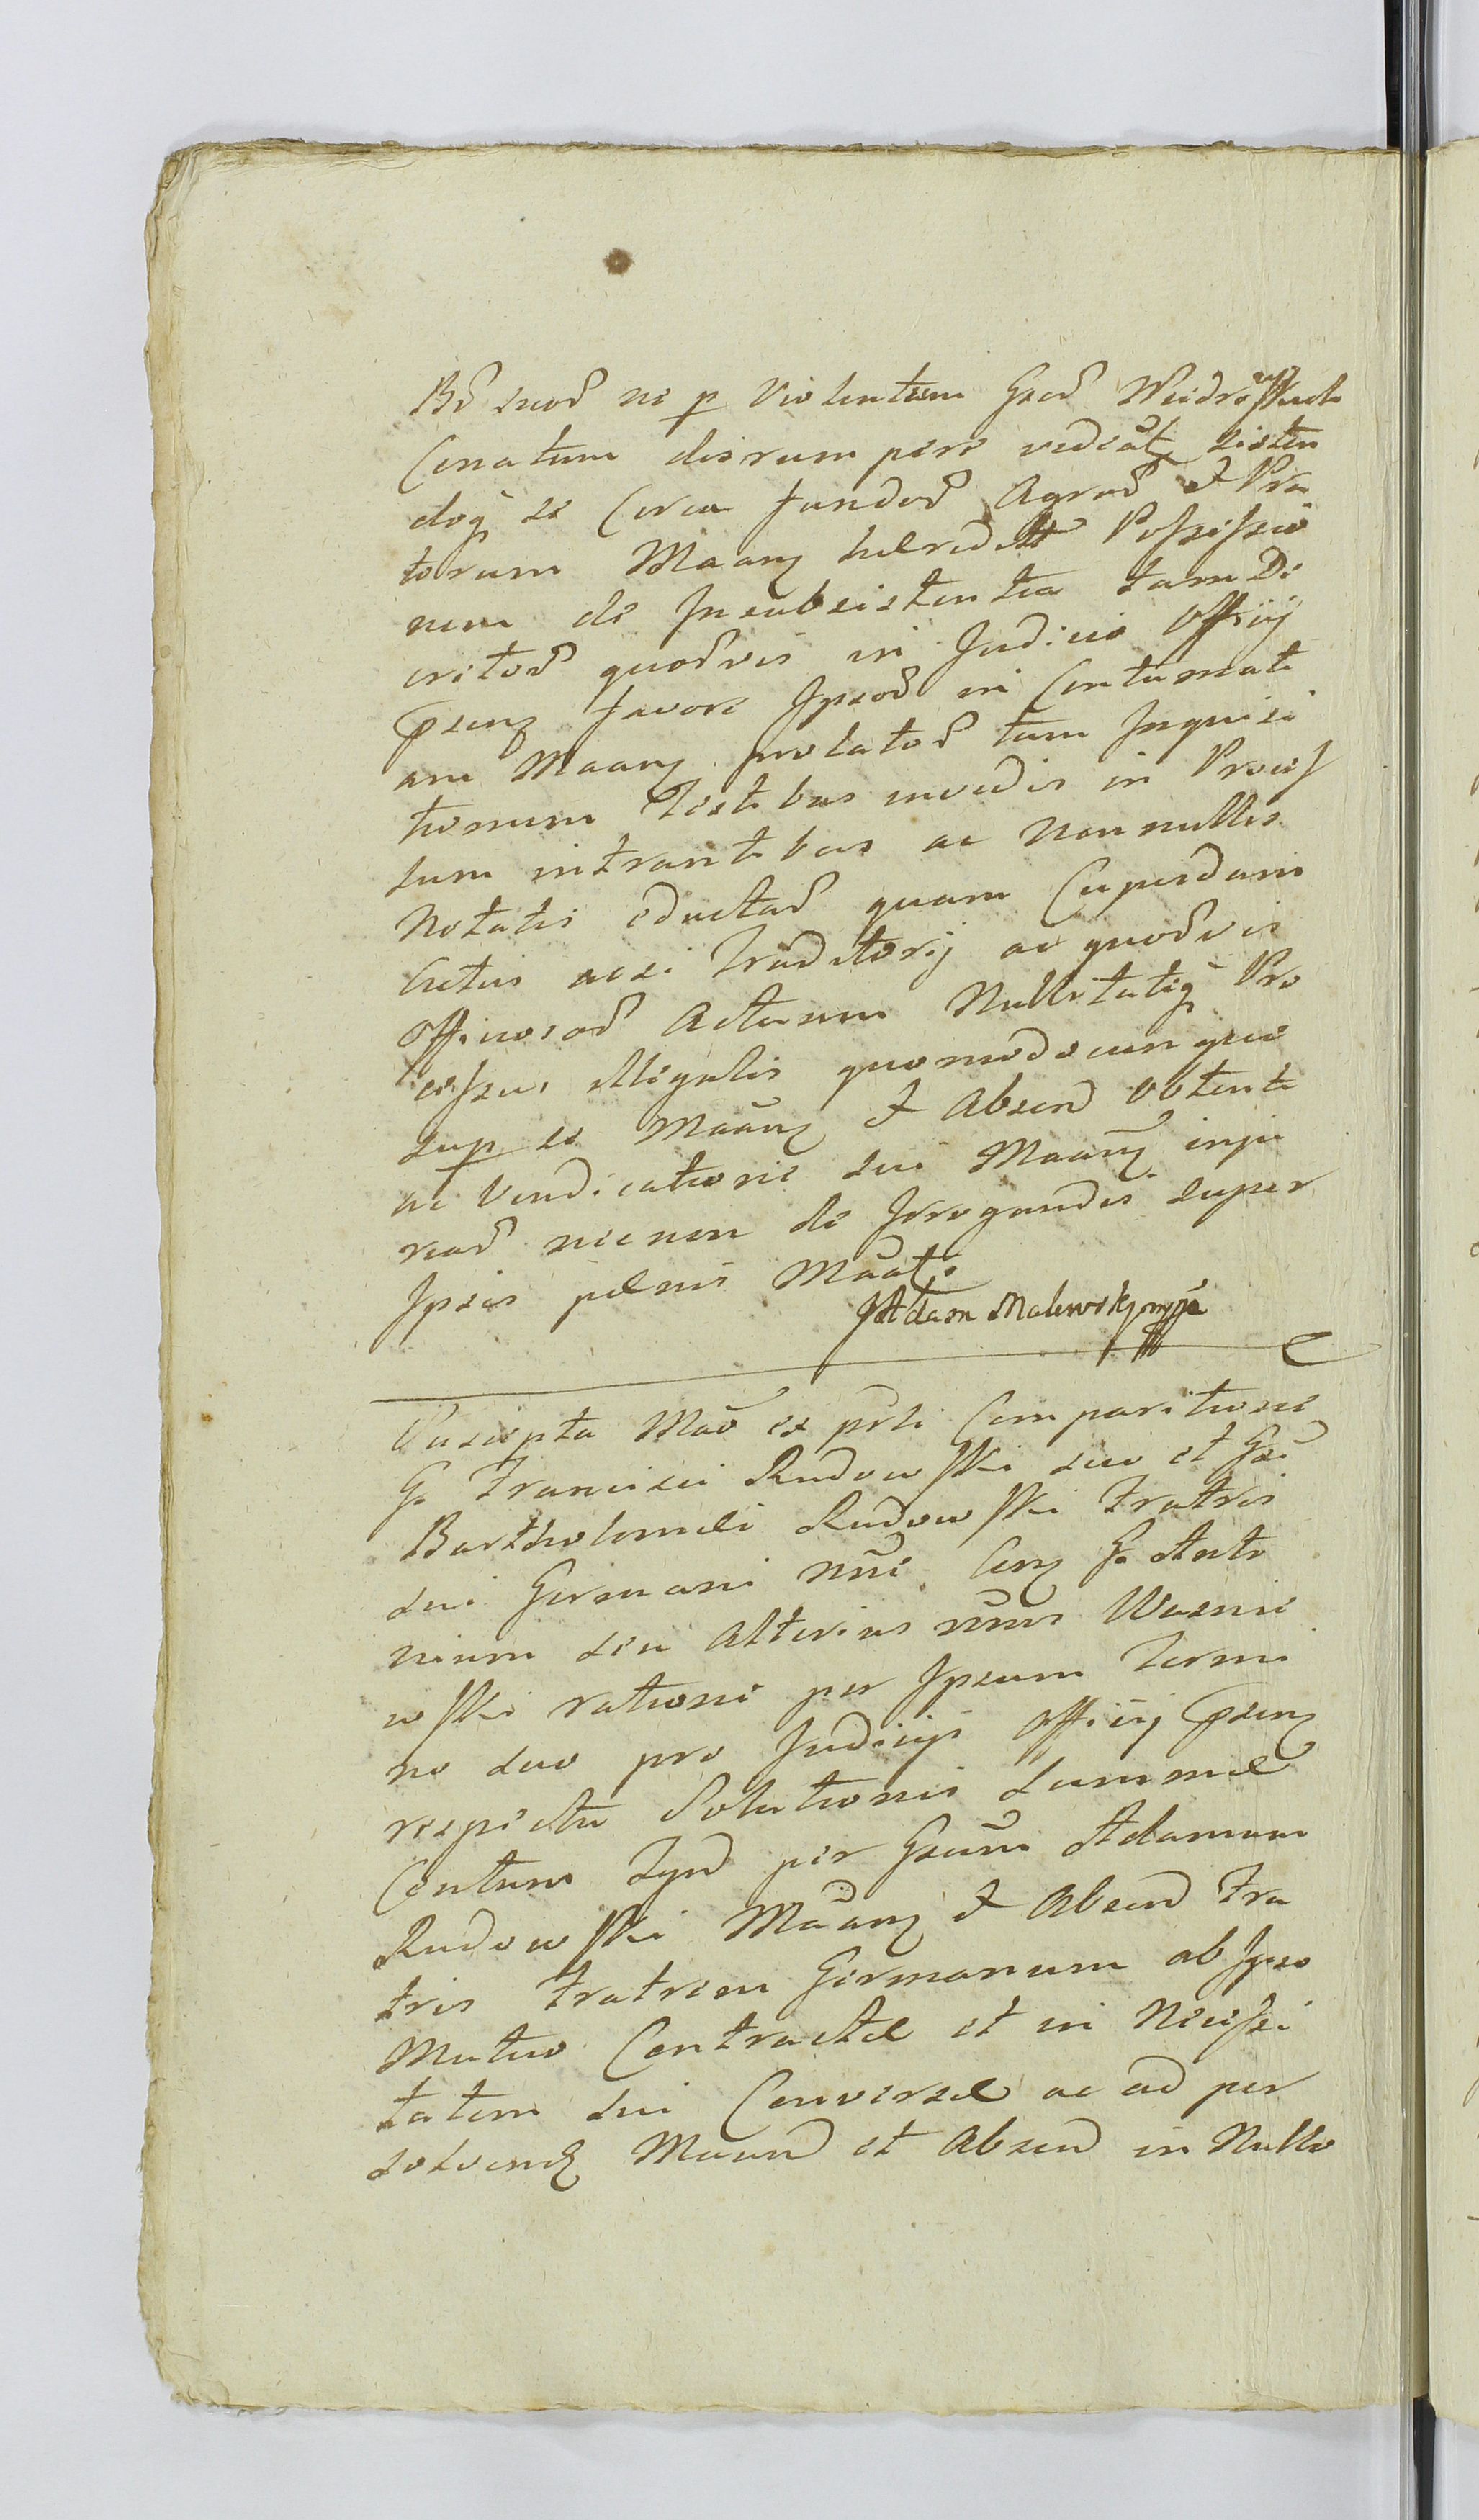 Conatum disrumpere videat sisten
doq se Circa fundos Agros et Pra
torum Maanz haeredit Possessio
nem de Insubsistentia tam De
critos quosvis in Judicio Officij
pseng favore Ipsos in Contumati
am Maanz prolatos tum Inquisi
tionum Testibus invidis in Proces
sum intrantibus ac Non nullis
Notatis eductas quam Cujusdam
Actus nisi Traditorij ac quosvis
Officiosos Actuum Nullitatiq Pro
cessu, illigalis quomodocunque
sup se Maanz et Absend obtenti
ac Vendicationi sui Maanz inju
rias nec non de Irrogandis super
Ipsis paenis Maat.
J Adam Malewsky mpp
Suscepta Mão ex prti Comparitione
G. Francisci Rudowski suo et Gsi
Bartholomaei Rudowski Fratris
sui Germani nne Conz G. Anto
nium seu Alterius nnis Wasnie
wski ratione per Ipsum Termi
no suo pro Judicijs Officij pseng
respectu Solutionis Summae
Centum Tyn per Gsum Adamum
Rudowski Maanz et Absend Fra
tris Fratrem Germanum ab Ipso
Mutuo Contractae et in Necessi
tatem sui Conversae ac ad per
solvend Maand et Absend in Nullo